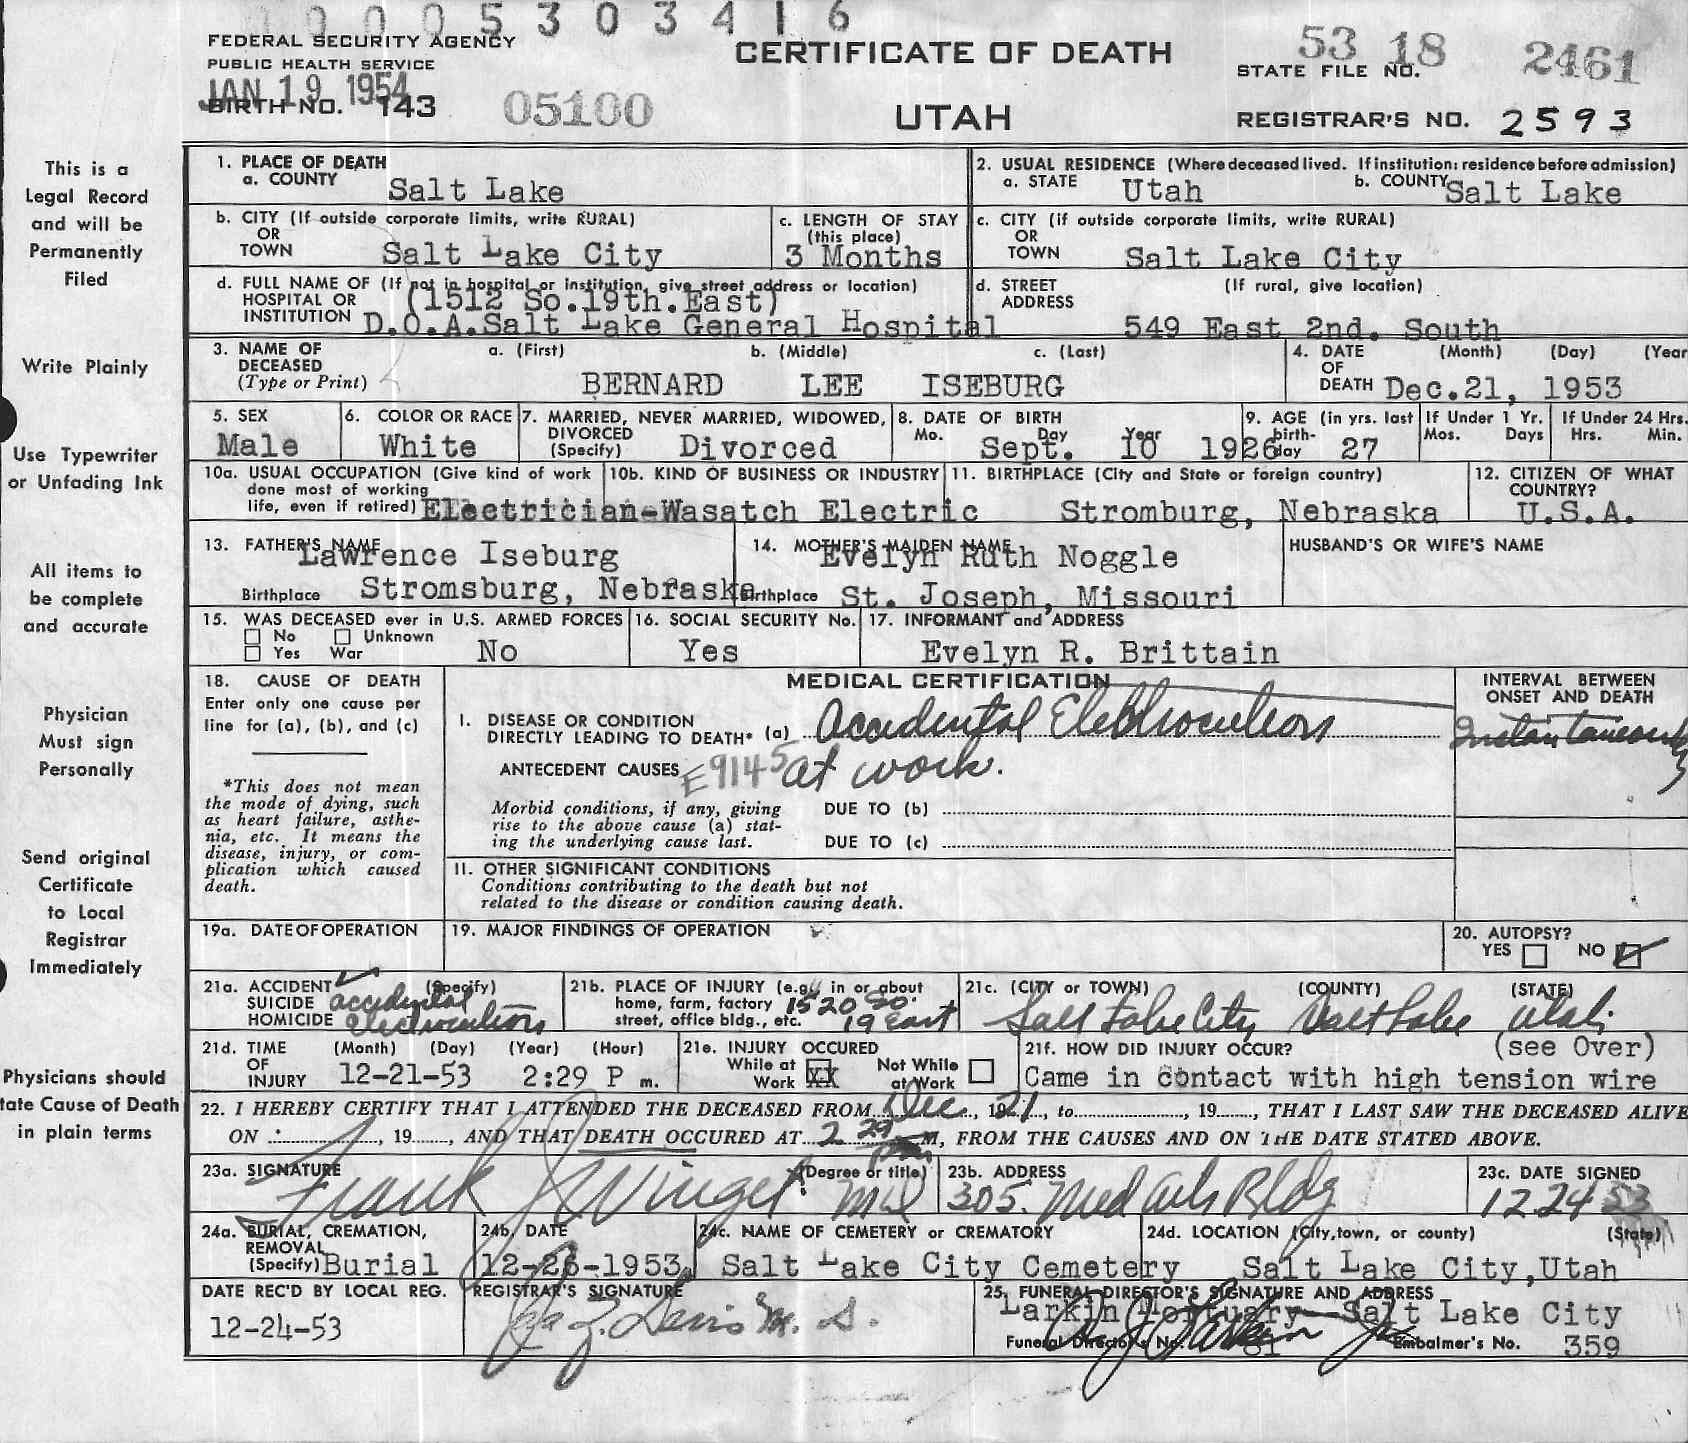 0005303416
FEDERAL SECURITY AGENCY
PUBLIC HEALTH SERVICE
JAN 19 1954
BIRTH NO. 143
05100
CERTIFICATE OF DEATH
UTAH
53 18 2461
STATE FILE NO.
REGISTRAR'S NO. 2593
This is a
Legal Record
and will be
Permanently
Filed
Write Plainly
Use Typewriter
or Unfading Ink
All items to
be complete
and accurate
Physician
Must sign
Personally
Send original
Certificate
to Local
Registrar
Immediately
Physicians should
tate Cause of Death
in plain terms
1. PLACE OF DEATH
a. COUNTY Salt Lake
2. USUAL RESIDENCE (Where deceased lived. If institution: residence before admission)
a. STATE Utah b. COUNTY Salt Lake
b. CITY (If outside corporate limits, write RURAL)
OR
TOWN Salt Lake City
c. LENGTH OF STAY
(this place)
3 Months
c. CITY (if outside corporate limits, write RURAL)
OR
TOWN Salt Lake City
d. FULL NAME OF (If not in hospital or institution, give street address or location)
HOSPITAL OR (1512 So.19th.East)
INSTITUTION D.O.A.Salt Lake General Hospital
d. STREET (If rural, give location)
ADDRESS
549 East 2nd. South
3. NAME OF a. (First) b. (Middle) c. (Last)
DECEASED
(Type or Print) BERNARD LEE ISEBURG
4. DATE (Month) (Day) (Year
OF
DEATH Dec.21, 1953
5. SEX
Male
6. COLOR OR RACE
White
7. MARRIED, NEVER MARRIED, WIDOWED,
DIVORCED
(Specify) Divorced
8. DATE OF BIRTH
Mo. Day Year
Sept. 10 1926
9. AGE (in yrs. last
birth-
day 27
If Under 1 Yr.
Mos. Days
If Under 24 Hrs.
Hrs. Min.
10a. USUAL OCCUPATION (Give kind of work
done most of working
life, even if retired) Electrician-Wasatch Electric
10b. KIND OF BUSINESS OR INDUSTRY
11. BIRTHPLACE (City and State or foreign country)
Stromburg, Nebraska
12. CITIZEN OF WHAT
COUNTRY?
U.S.A.
13. FATHER'S NAME
Lawrence Iseburg
Birthplace Stromsburg, Nebraska
14. MOTHER'S MAIDEN NAME
Evelyn Ruth Noggle
Birthplace St. Joseph, Missouri
HUSBAND'S OR WIFE'S NAME
15. WAS DECEASED ever in U.S. ARMED FORCES
No Unknown
Yes War No
16. SOCIAL SECURITY No.
Yes
17. INFORMANT and ADDRESS
Evelyn R. Brittain
18. CAUSE OF DEATH
Enter only one cause per
line for (a), (b), and (c)
*This does not mean
the mode of dying, such
as heart failure, asthe-
nia, etc. It means the
disease, injury, or com-
plication which caused
death.
MEDICAL CERTIFICATION
I. DISEASE OR CONDITION
DIRECTLY LEADING TO DEATH* (a) Accidental Electrocution
ANTECEDENT CAUSES E9145 at work.
Morbid conditions, if any, giving
rise to the above cause (a) stat-
ing the underlying cause last.
DUE TO (b)
DUE TO (c)
II. OTHER SIGNIFICANT CONDITIONS
Conditions contributing to the death but not
related to the disease or condition causing death.
INTERVAL BETWEEN
ONSET AND DEATH
Instantaneously
19a. DATE OF OPERATION
19. MAJOR FINDINGS OF OPERATION
20. AUTOPSY?
YES NO
21a. ACCIDENT (Specify)
SUICIDE accidental
HOMICIDE electrocution
21b. PLACE OF INJURY (e.g. in or about
home, farm, factory 1520 So.
street, office bldg., etc. 19 East
21c. (CITY or TOWN) (COUNTY) (STATE)
Salt Lake City Salt Lake Utah
21d. TIME (Month) (Day) (Year) (Hour)
OF
INJURY 12-21-53 2:29 P m.
21e. INJURY OCCURED
While at Work XX Not While at Work
21f. HOW DID INJURY OCCUR? (see Over)
Came in contact with high tension wire
22. I HEREBY CERTIFY THAT I ATTENDED THE DECEASED FROM Dec., 19 21, to , 19 , THAT I LAST SAW THE DECEASED ALIVE
ON , 19 , AND THAT DEATH OCCURED AT 2 29 pm M, FROM THE CAUSES AND ON THE DATE STATED ABOVE.
23a. SIGNATURE (Degree or title)
Frank J Winget MD
23b. ADDRESS
305 Med Arts Bldg
23c. DATE SIGNED
12 24 53
24a. BURIAL, CREMATION,
REMOVAL
(Specify) Burial
24b. DATE
12-26-1953
24c. NAME OF CEMETERY or CREMATORY
Salt Lake City Cemetery
24d. LOCATION (City, town, or county) (State)
Salt Lake City,Utah
DATE REC'D BY LOCAL REG.
12-24-53
REGISTRAR'S SIGNATURE
25. FUNERAL DIRECTOR'S SIGNATURE AND ADDRESS
Larkin Mortuary Salt Lake City
Funeral Director's No. 81 Embalmer's No. 359